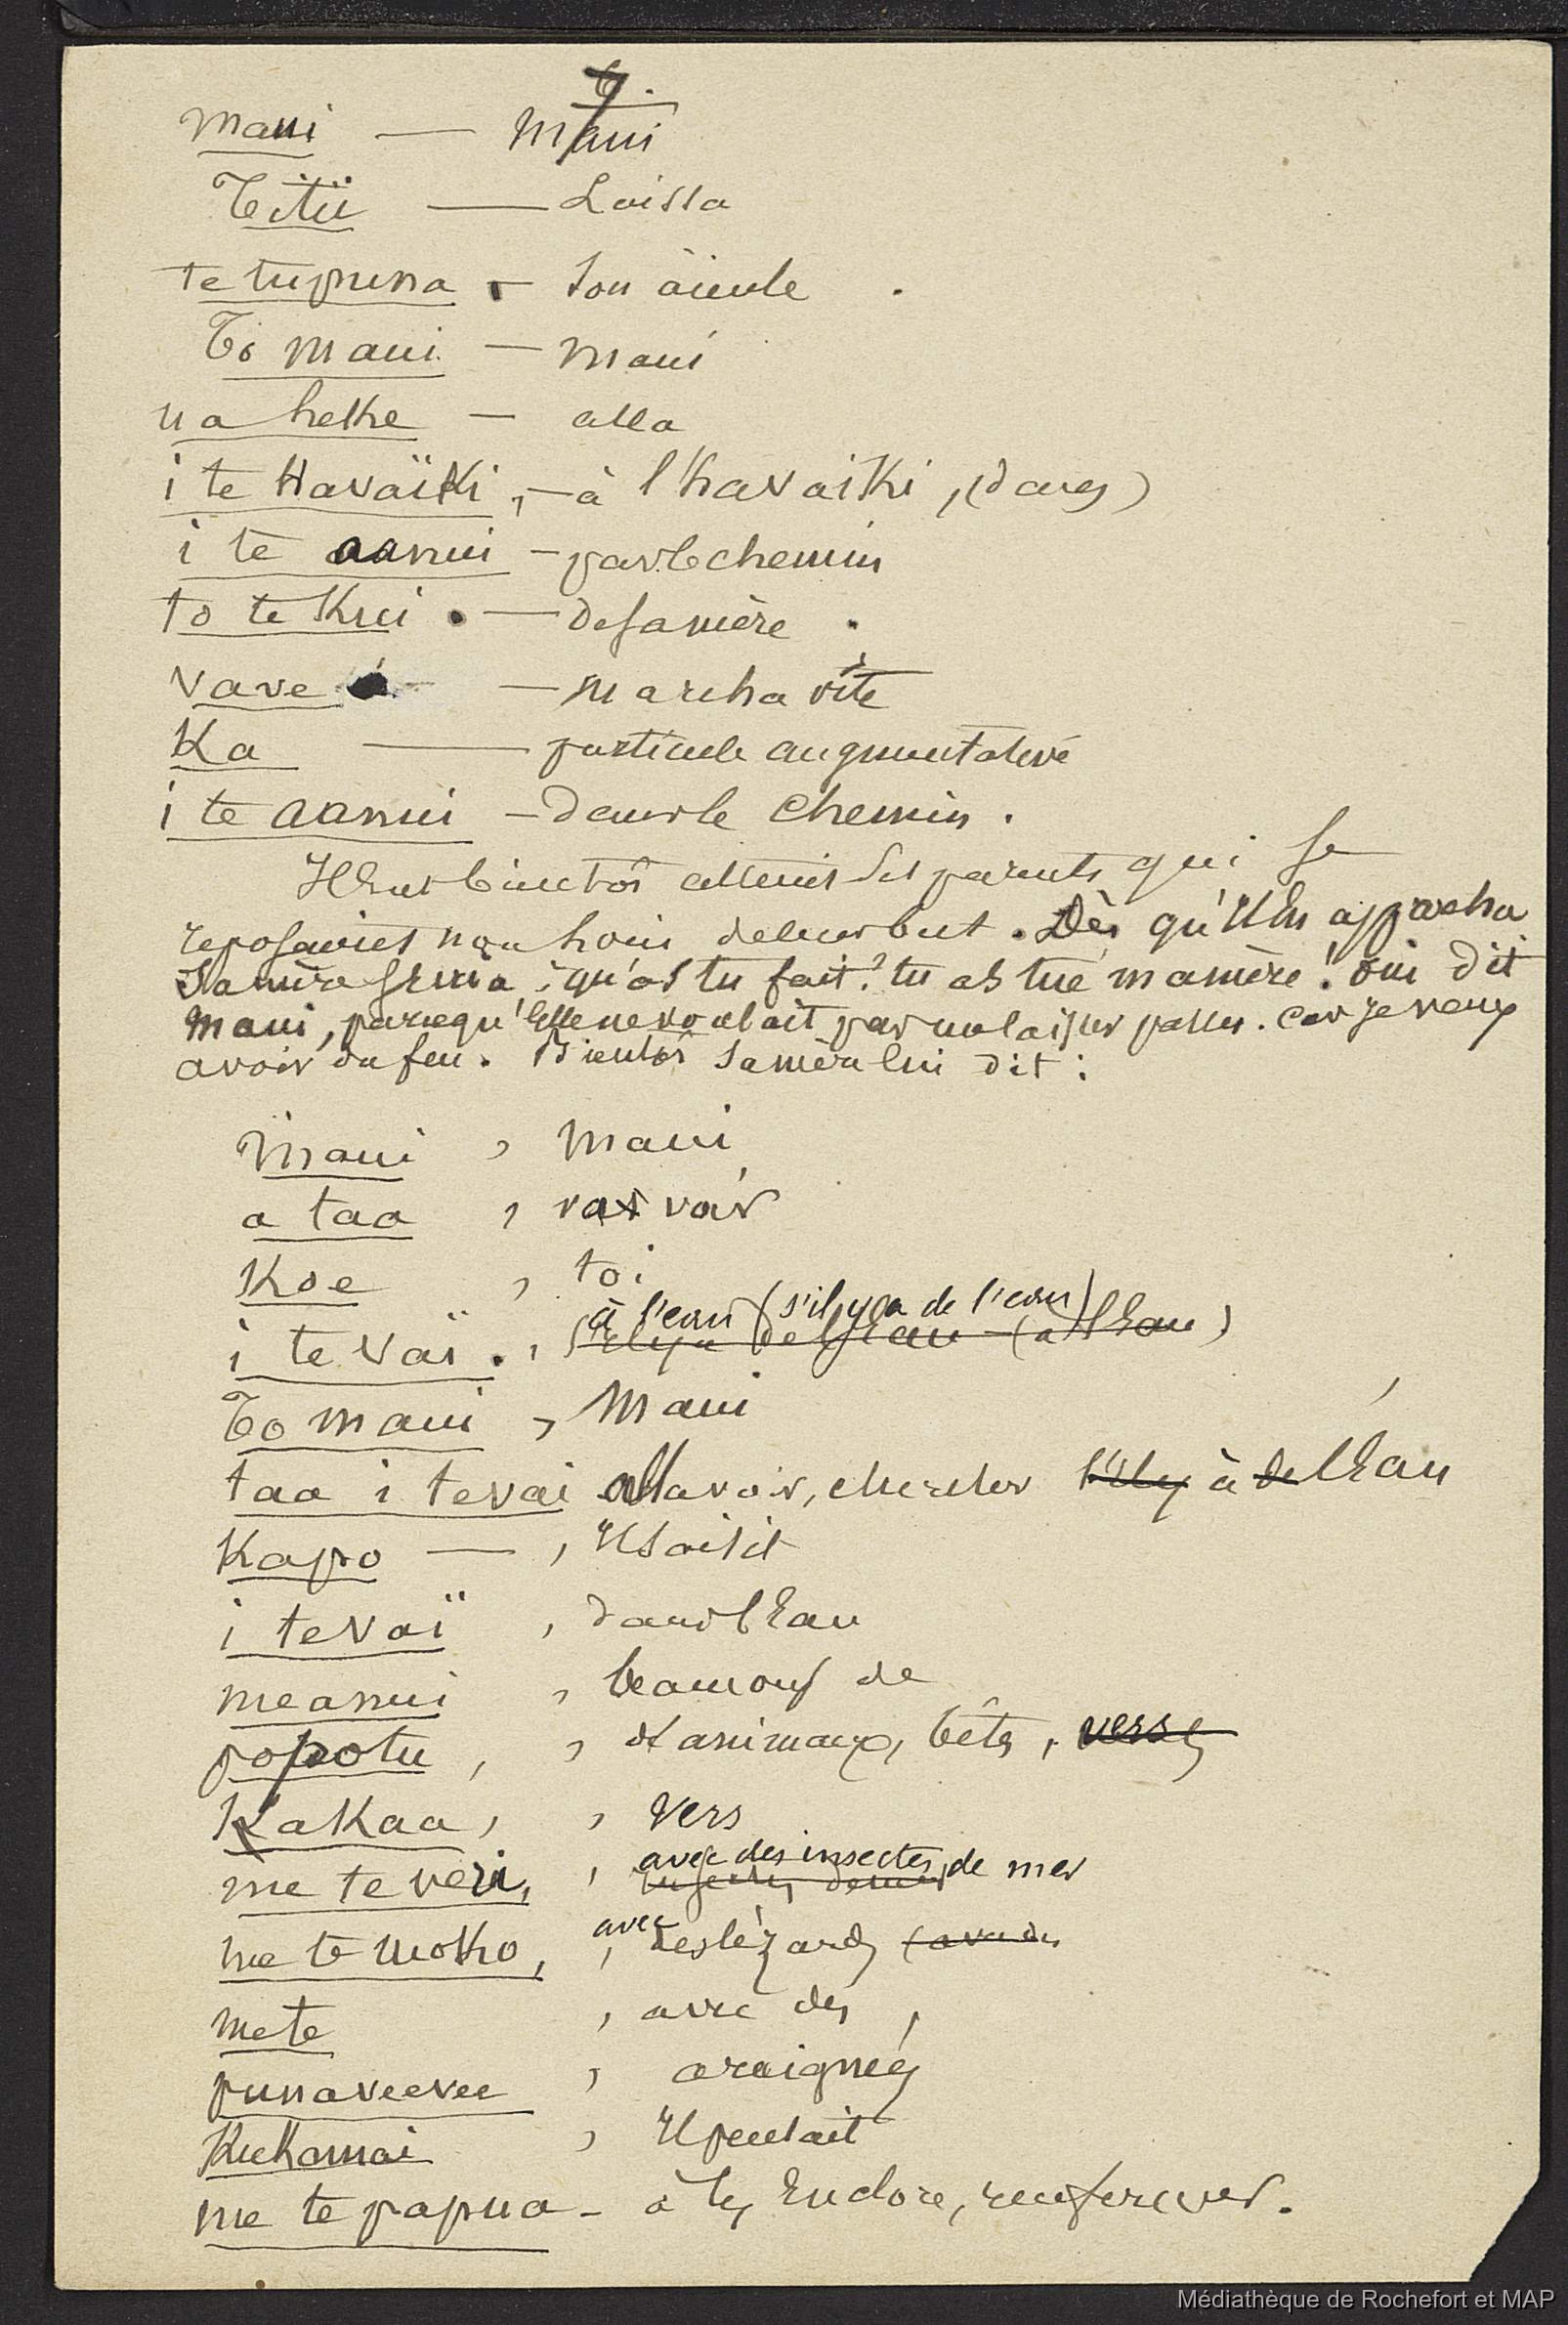 7.
Maui — Maui
Titii — Laissa
te tupuna — Son aïeule.
To maui — Maui
ua heke — alla
i te Havaïki, — à l'havaiki, (dans)
i te aanui — par le chemin
to te Kui. — de sa mère.
vave — marcha vite
Ka — particule augmentative
i te aanui — dans le chemin.
Il eut bientôt atteint ses parents qui se
reposaient non loin de leur but. Dès qu'il les approcha
sa mère s'écria : qu'as tu fait ? tu as tué ma mère ! oui dit
Maui, parcequ'elle ne voulait pas me laisser passer. car je veux
avoir du feu. Bientôt sa mère lui dit :
Maui, Maui
a taa, vas voir
Koe, toi
à l'eau (s'il y a de l'eau)
i te vaï., S'il y a de l'eau — (à l'eau)
To maui, Maui
taa i tevai alla voir, chercher s'il y à de l'Eau
Kapo —, Il saisit
i tevaï, dans l'Eau
meanui, beaucoup de
popotu,, d'animaux, bêtes, verses
Kakaa,, vers
avec des insectes
me te veri,, insectes de mer, de mer
avec
me te moko,, des lézards (avec des
mete, avec des,
punaveevee, araignées
Kukamai, Il pensait
me te papua — à les Enclore, renfermer.
Médiathèque de Rochefort et MAP